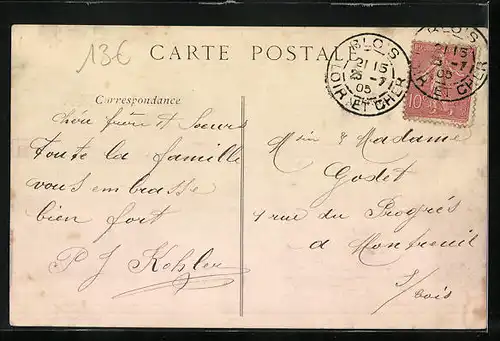 13€
CARTE POSTALE
Correspondance
chers frère et Sœurs
Toute la famille
vous embrasse
bien fort
P J Kohler
BLOIS
21 15
5 -7
05
LOIR ET CHER
BLOIS
21 15
5 -7
05
LOIR ET CHER
10
Msin & Madame
Godet
1 rue du Progrés
a Montreuil
s/bois